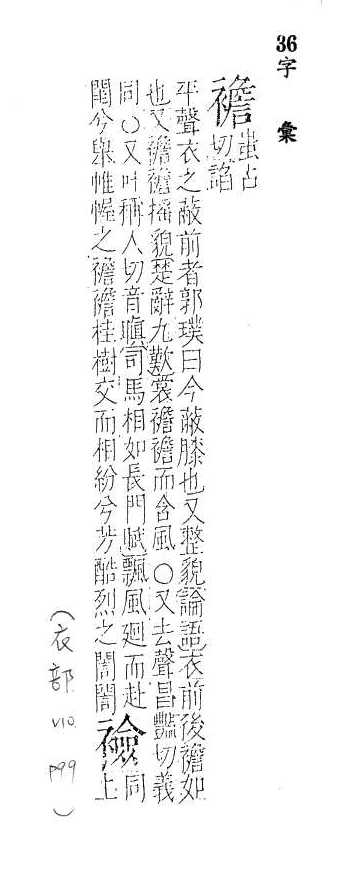 36字 彙
襜
蚩占
切諂
平聲衣之蔽前者郭璞曰今蔽膝也又整貌論語衣前後襜如
也又襜襜搖貌楚辭九歎裳襜襜而含風○又去聲昌豔切義
同○又叶稱人切音瞋司馬相如長門賦飄風廻而赴
閨兮舉帷幄之襜襜桂樹交而相紛兮芳酷烈之誾誾
襝
同
上
(衣部 V10. P99)